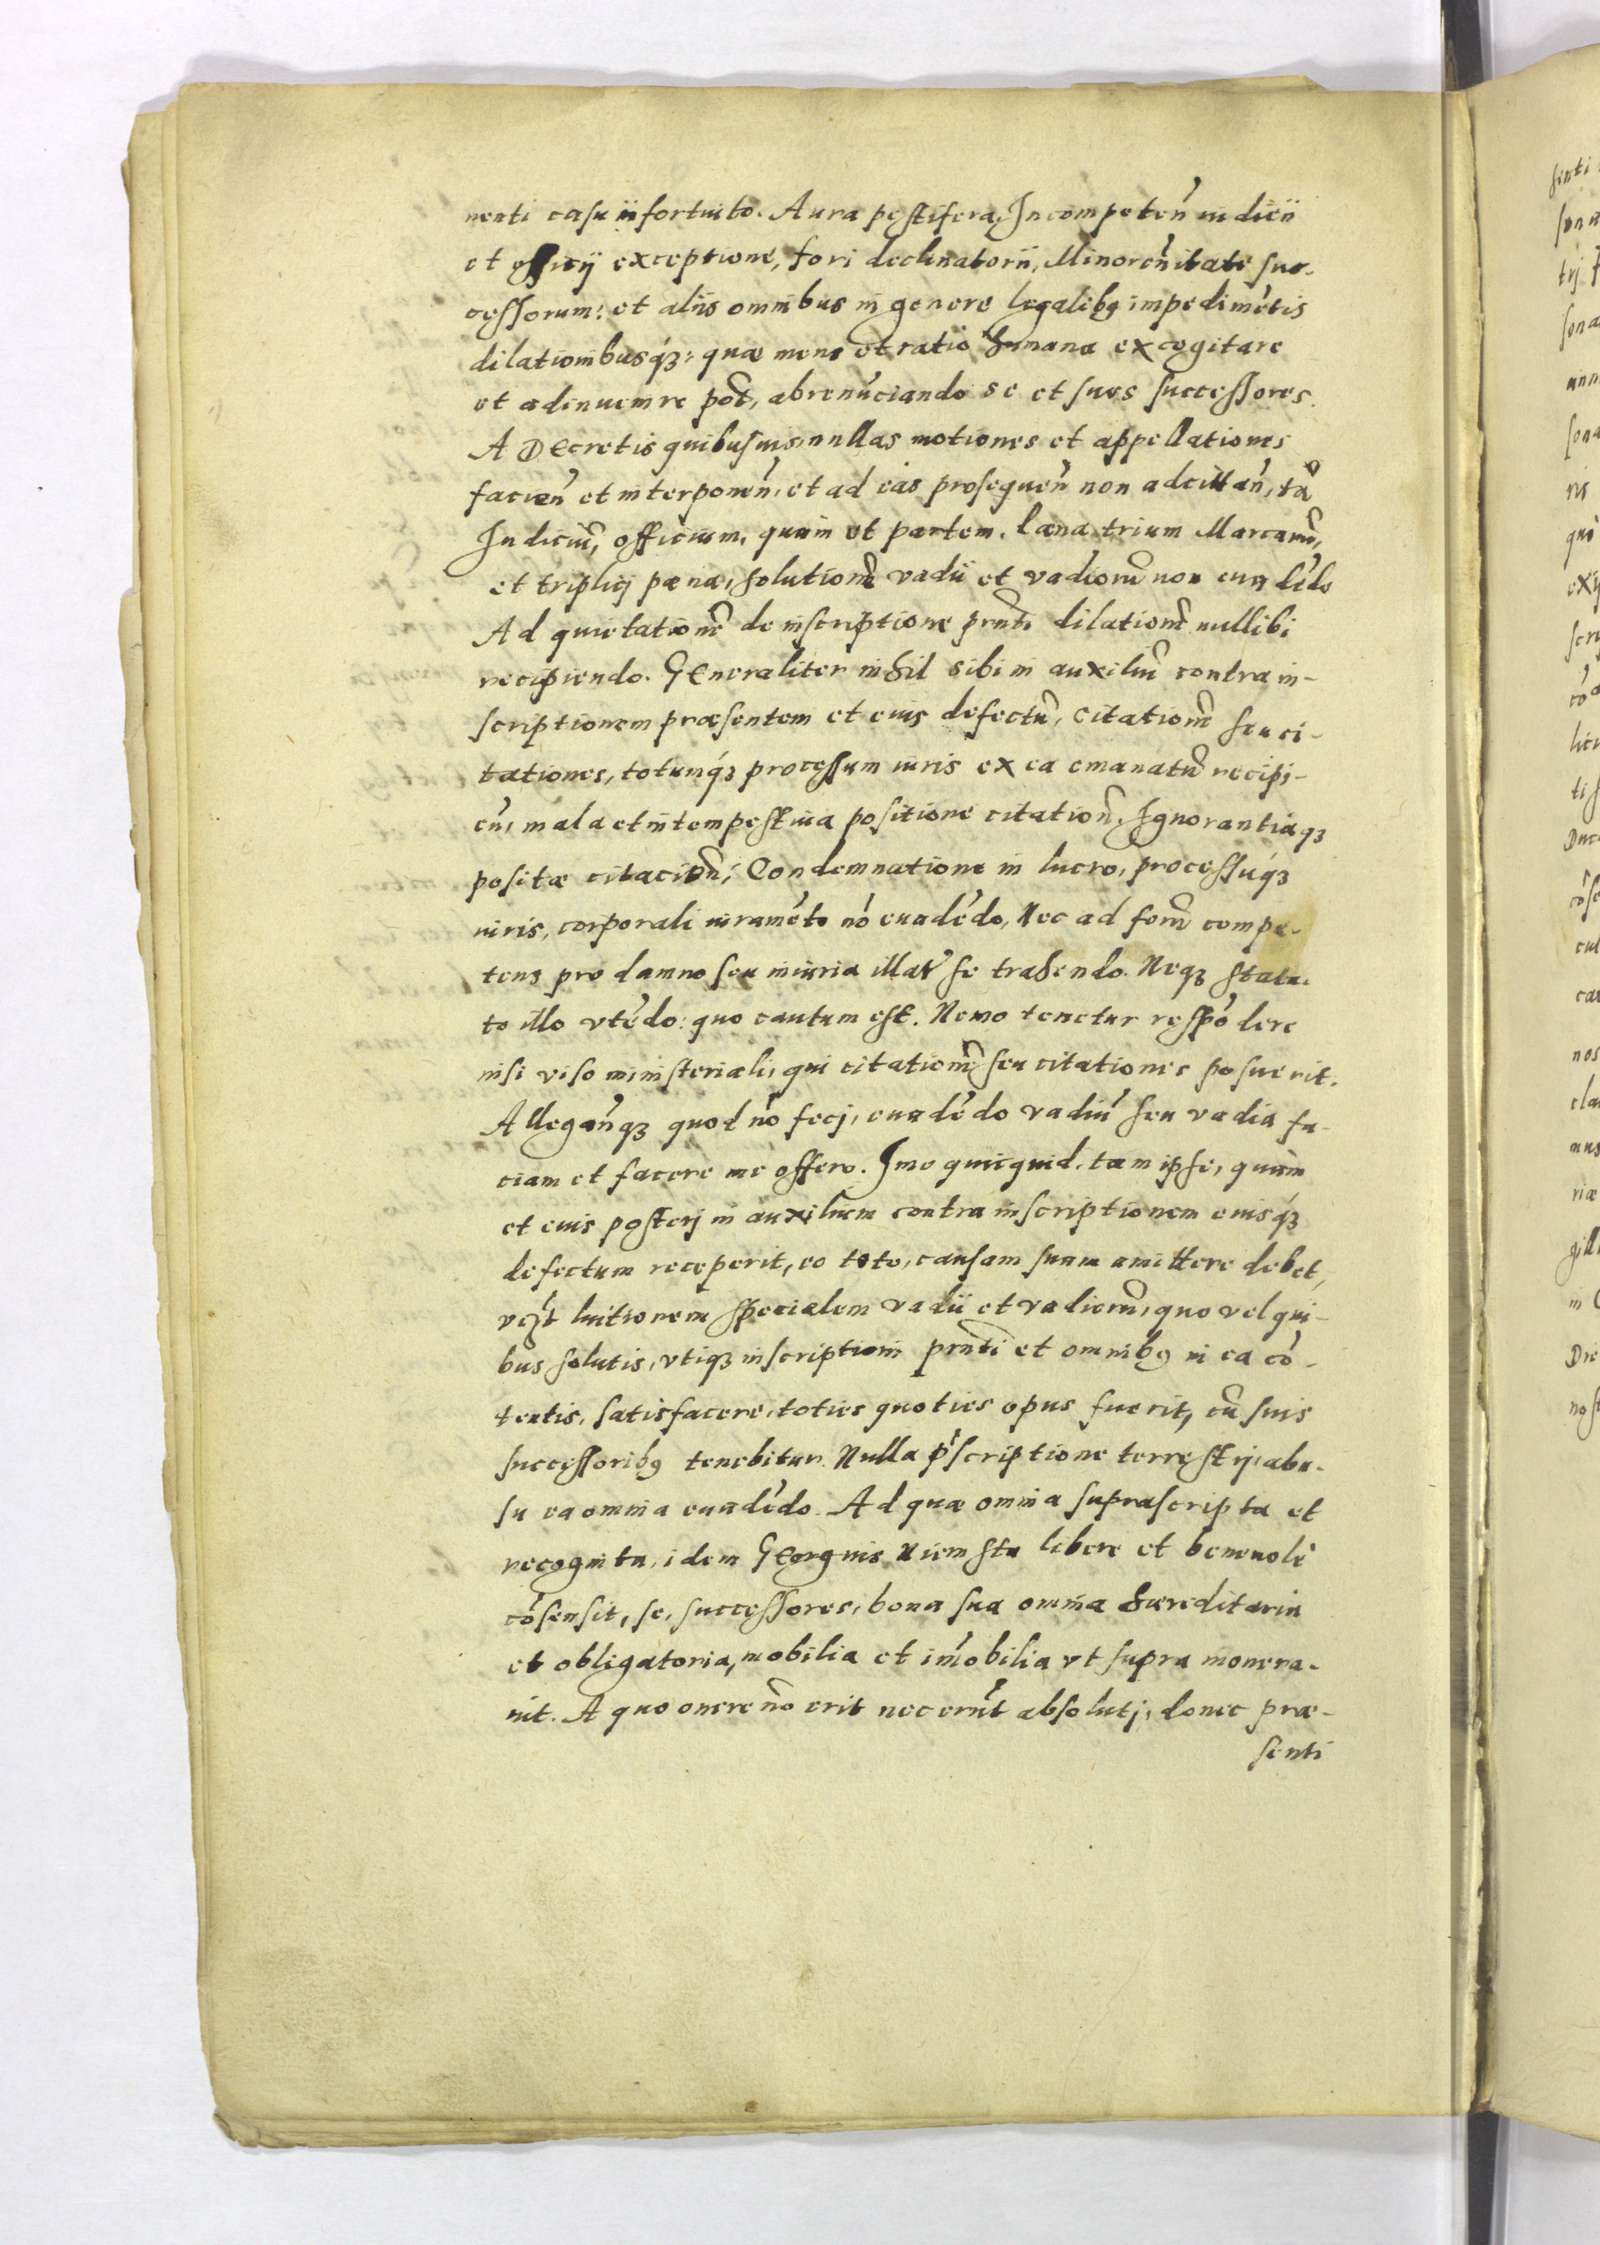 nenti casu infortuito. Aura pestifera, Incompeten̄ iudicii
et officij exceptione, fori declinatorii, Minoren̄itate suc-
cessorum: et aliis omnibus in genere legalibꝯ impedimētis
dilationibusq́ꝫ: quæ mens et ratio humana excogitare
et adinuenire pōt, abrenūciando se et suos successores.
A Decretis quibusuis nullas motiones et appellationes
facien̄ et interponen̄, et ad eas prosequen̄ non adcitan̄, tā
Iudiciū, officium, quam et partem. Pæna trium Marcarū,
et triplici pæna, solutionē vadii et vadiorū non euadēdo
Ad quietationē de inscriptione prn̄ti dilationē nullibi
recipiendo. GEneraliter nihil sibi in auxiliū contra in-
scriptionem præsentem et eius defectū, citationē seu ci-
tationes, totumq́ꝫ processum iuris ex ea emanatū recipi-
en̄, mala et intempestiua positione citation̄, Ignorantiaqꝫ
positæ citacion̄, Condemnatione in lucro, processuq́ꝫ
iuris, corporali iuramēto nō euadēdo, Nec ad forū compe-
tens pro damno seu iniuria illat̄ se trahendo. Neqꝫ statu-
to illo vtēdo: quo cautum est. Nemo tenetur respōdere
nisi viso ministeriali, qui citationē seu citationes posuerit.
Allegan̄qꝫ quod nō feci, euadēdo vadiū seu vadia fa-
ciam et facere me offero. Imo quicquid, tam ipse, quam
et eius posteri in auxilium contra inscriptionem eiusq́ꝫ
defectum receperit, eo toto, causam suam amittere debet,
post luitionem specialem vadii et vadiorū, quo vel qui-
bus solutis, vtiqꝫ inscriptioni prn̄ti et omnibꝯ in ea cō-
tentis, satisfacere, toties quoties opus fuerit, cū suis
successoribꝯ tenebitur. Nulla p̄scriptione terrestrj, abu-
su ea omnia euadēdo. Ad quæ omnia suprascripta et
recognita, idem GEorgius Niemsta libere et beneuolè
cōsensit, se, successores, bona sua omnia hæreditaria
et obligatoria, mobilia et im̄obilia vt supra innera-
uit. A quo onere nō erit nec erūt absolutj, donec præ-
senti